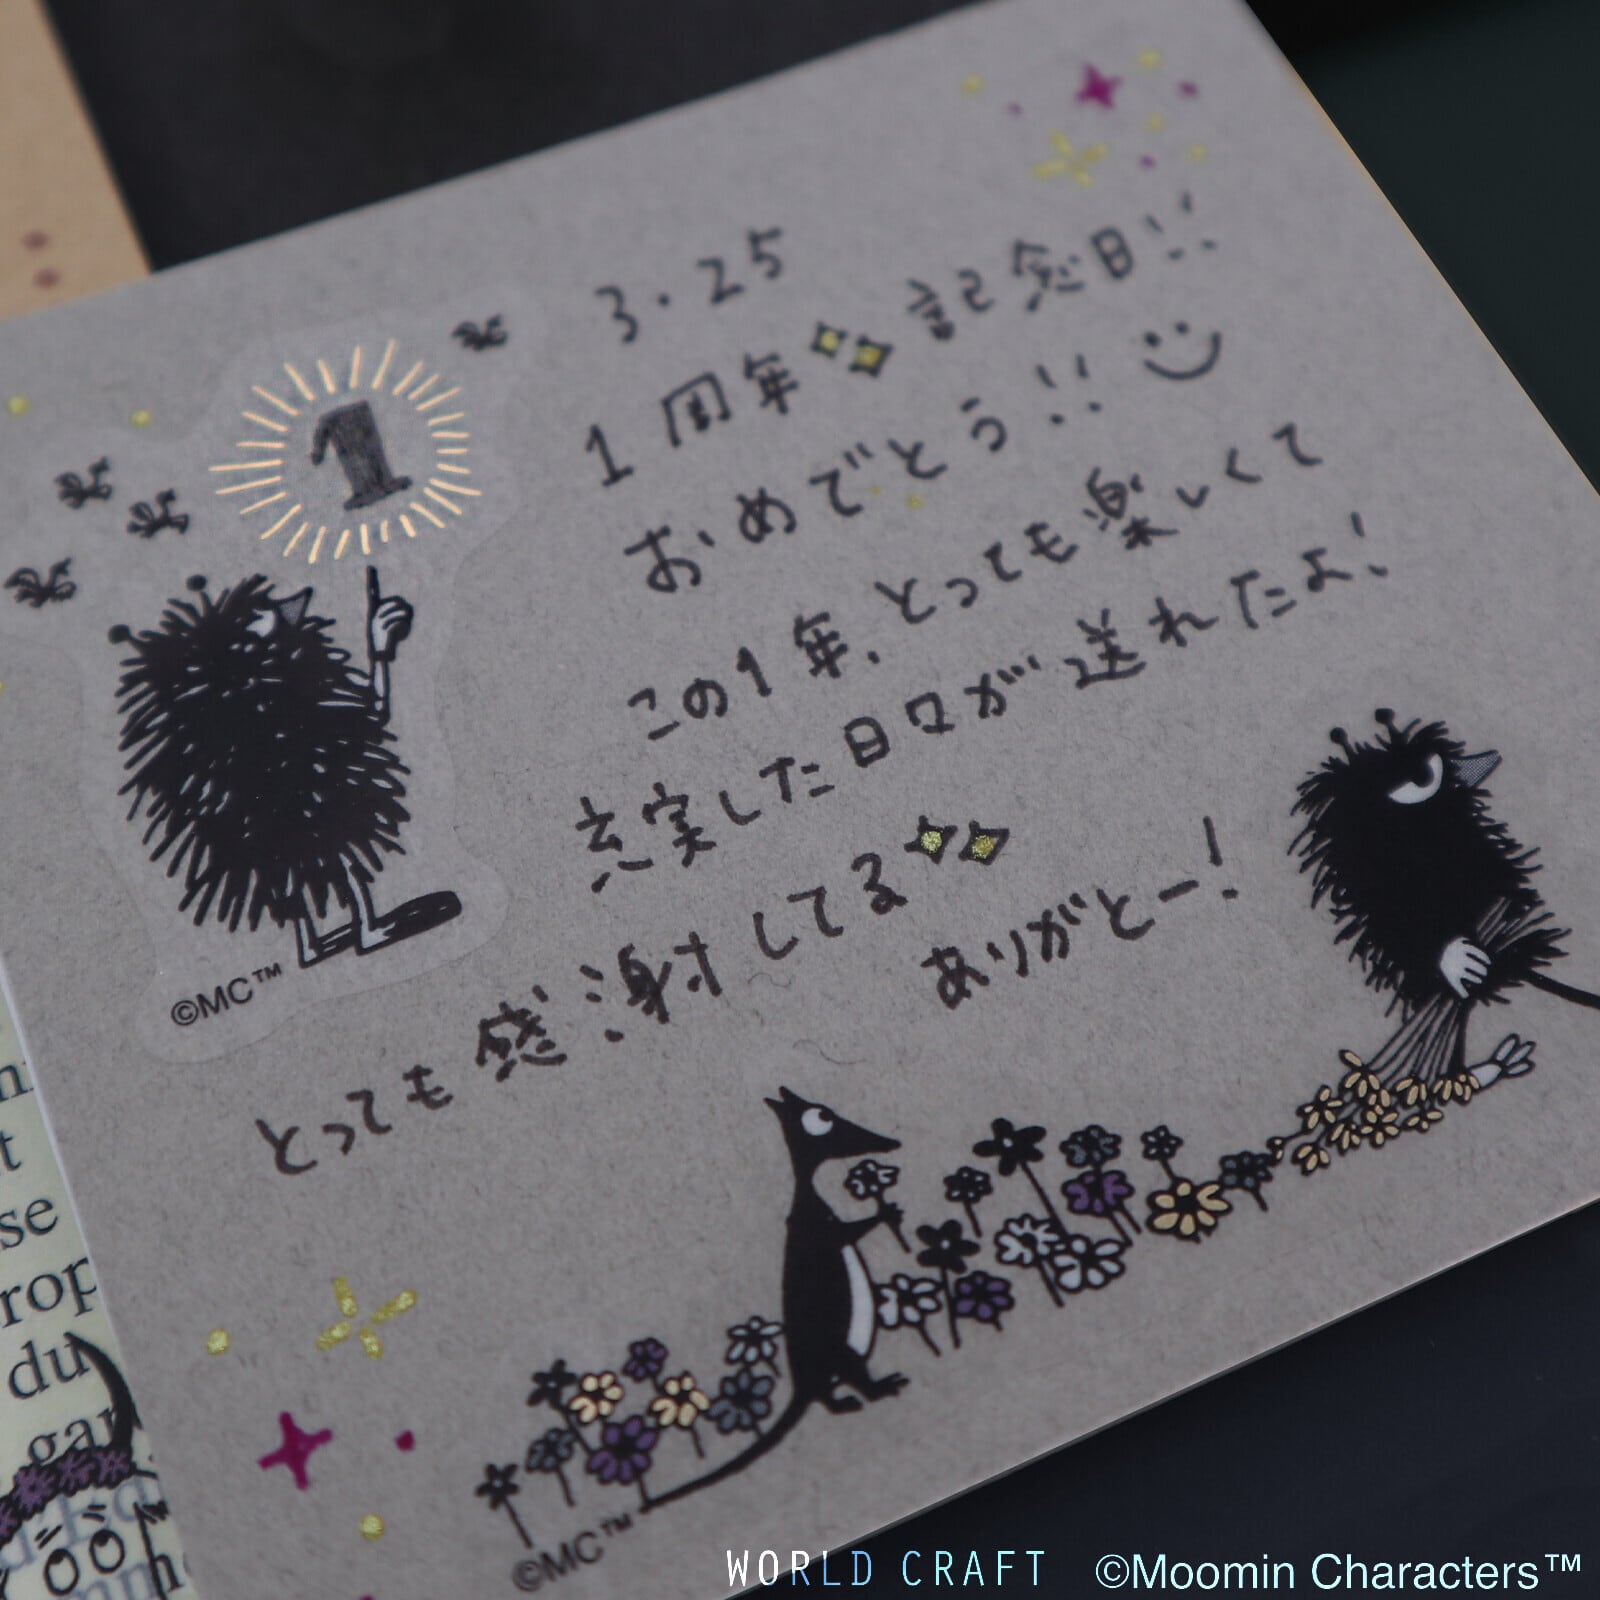 3.25
1周年 記念日!!
おめでとう!!
この1年、とっても楽しくて
充実した日々が送れたよ!
とっても感謝してる
ありがとー!
1
©MC™
©MC™
t
se
rop
du
gar
WORLD CRAFT ©Moomin Characters™